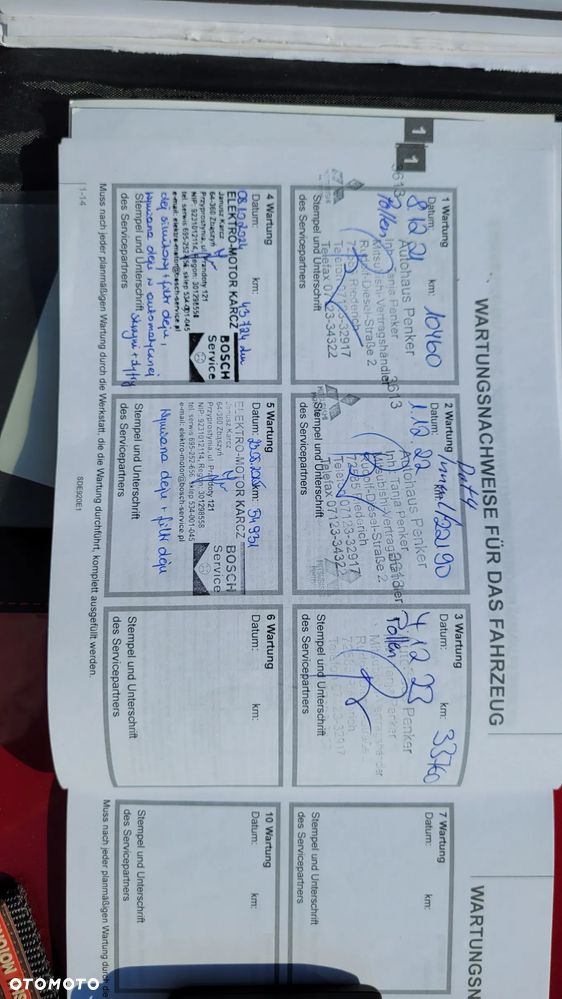 WARTUNGSNACHWEISE FÜR DAS FAHRZEUG
1
1 Wartung
Datum:
km:
8 12 21
10460
Pollen
Autohaus Penker
Inh. Tanja Penker
Mitsubishi-Vertragshändler
Rudolf-Diesel-Straße 2
Telefon 07123-32917
Telefax 07123-34322
Stempel und Unterschrift
des Servicepartners
2 Wartung
Datum:
km:
1.12 22
22090
3613
Autohaus Penker
Inh. Tanja Penker
Mitsubishi-Vertragshändler
Rudolf-Diesel-Straße 2
Telefon 07123-32917
Telefax 07123-34322
Stempel und Unterschrift
des Servicepartners
3 Wartung
Datum:
km:
4 12 23
33760
Pollen
Penker
Stempel und Unterschrift
des Servicepartners
4 Wartung
Datum:
km:
08.10.2024
43724 km
ELEKTRO-MOTOR KARCZ
Janusz Karcz
64-360 Zbąszyń
Przyprostynia, ul. Prandoty 121
NIP: 9231012114, Regon: 301298558
tel. serwis 695-252-656, sklep 534-001-045
e-mail: elektro-motor@bosch-service.pl
BOSCH
Service
olej silnikowy + filtr oleju,
wymiana oleju w automatycznej
Stempel und Unterschrift
des Servicepartners
5 Wartung
Datum:
km:
51931
ELEKTRO-MOTOR KARCZ
Janusz Karcz
64-360 Zbąszyń
Przyprostynia, ul. Prandoty 121
NIP: 9231012114, Regon: 301298558
tel. serwis 695-252-656, sklep 534-001-045
e-mail: elektro-motor@bosch-service.pl
BOSCH
Service
Wymiana oleju + filtr oleju
Stempel und Unterschrift
des Servicepartners
6 Wartung
Datum:
km:
Stempel und Unterschrift
des Servicepartners
Muss nach jeder planmäßigen Wartung durch die Werkstatt, die die Wartung durchführt, komplett ausgefüllt werden.
1-14
SDE920E1
1
WARTUNGSN
7 Wartung
Datum:
km:
Stempel und Unterschrift
des Servicepartners
10 Wartung
Datum:
km:
Stempel und Unterschrift
des Servicepartners
Muss nach jeder planmäßigen Wartung durch de
OTOMOTO